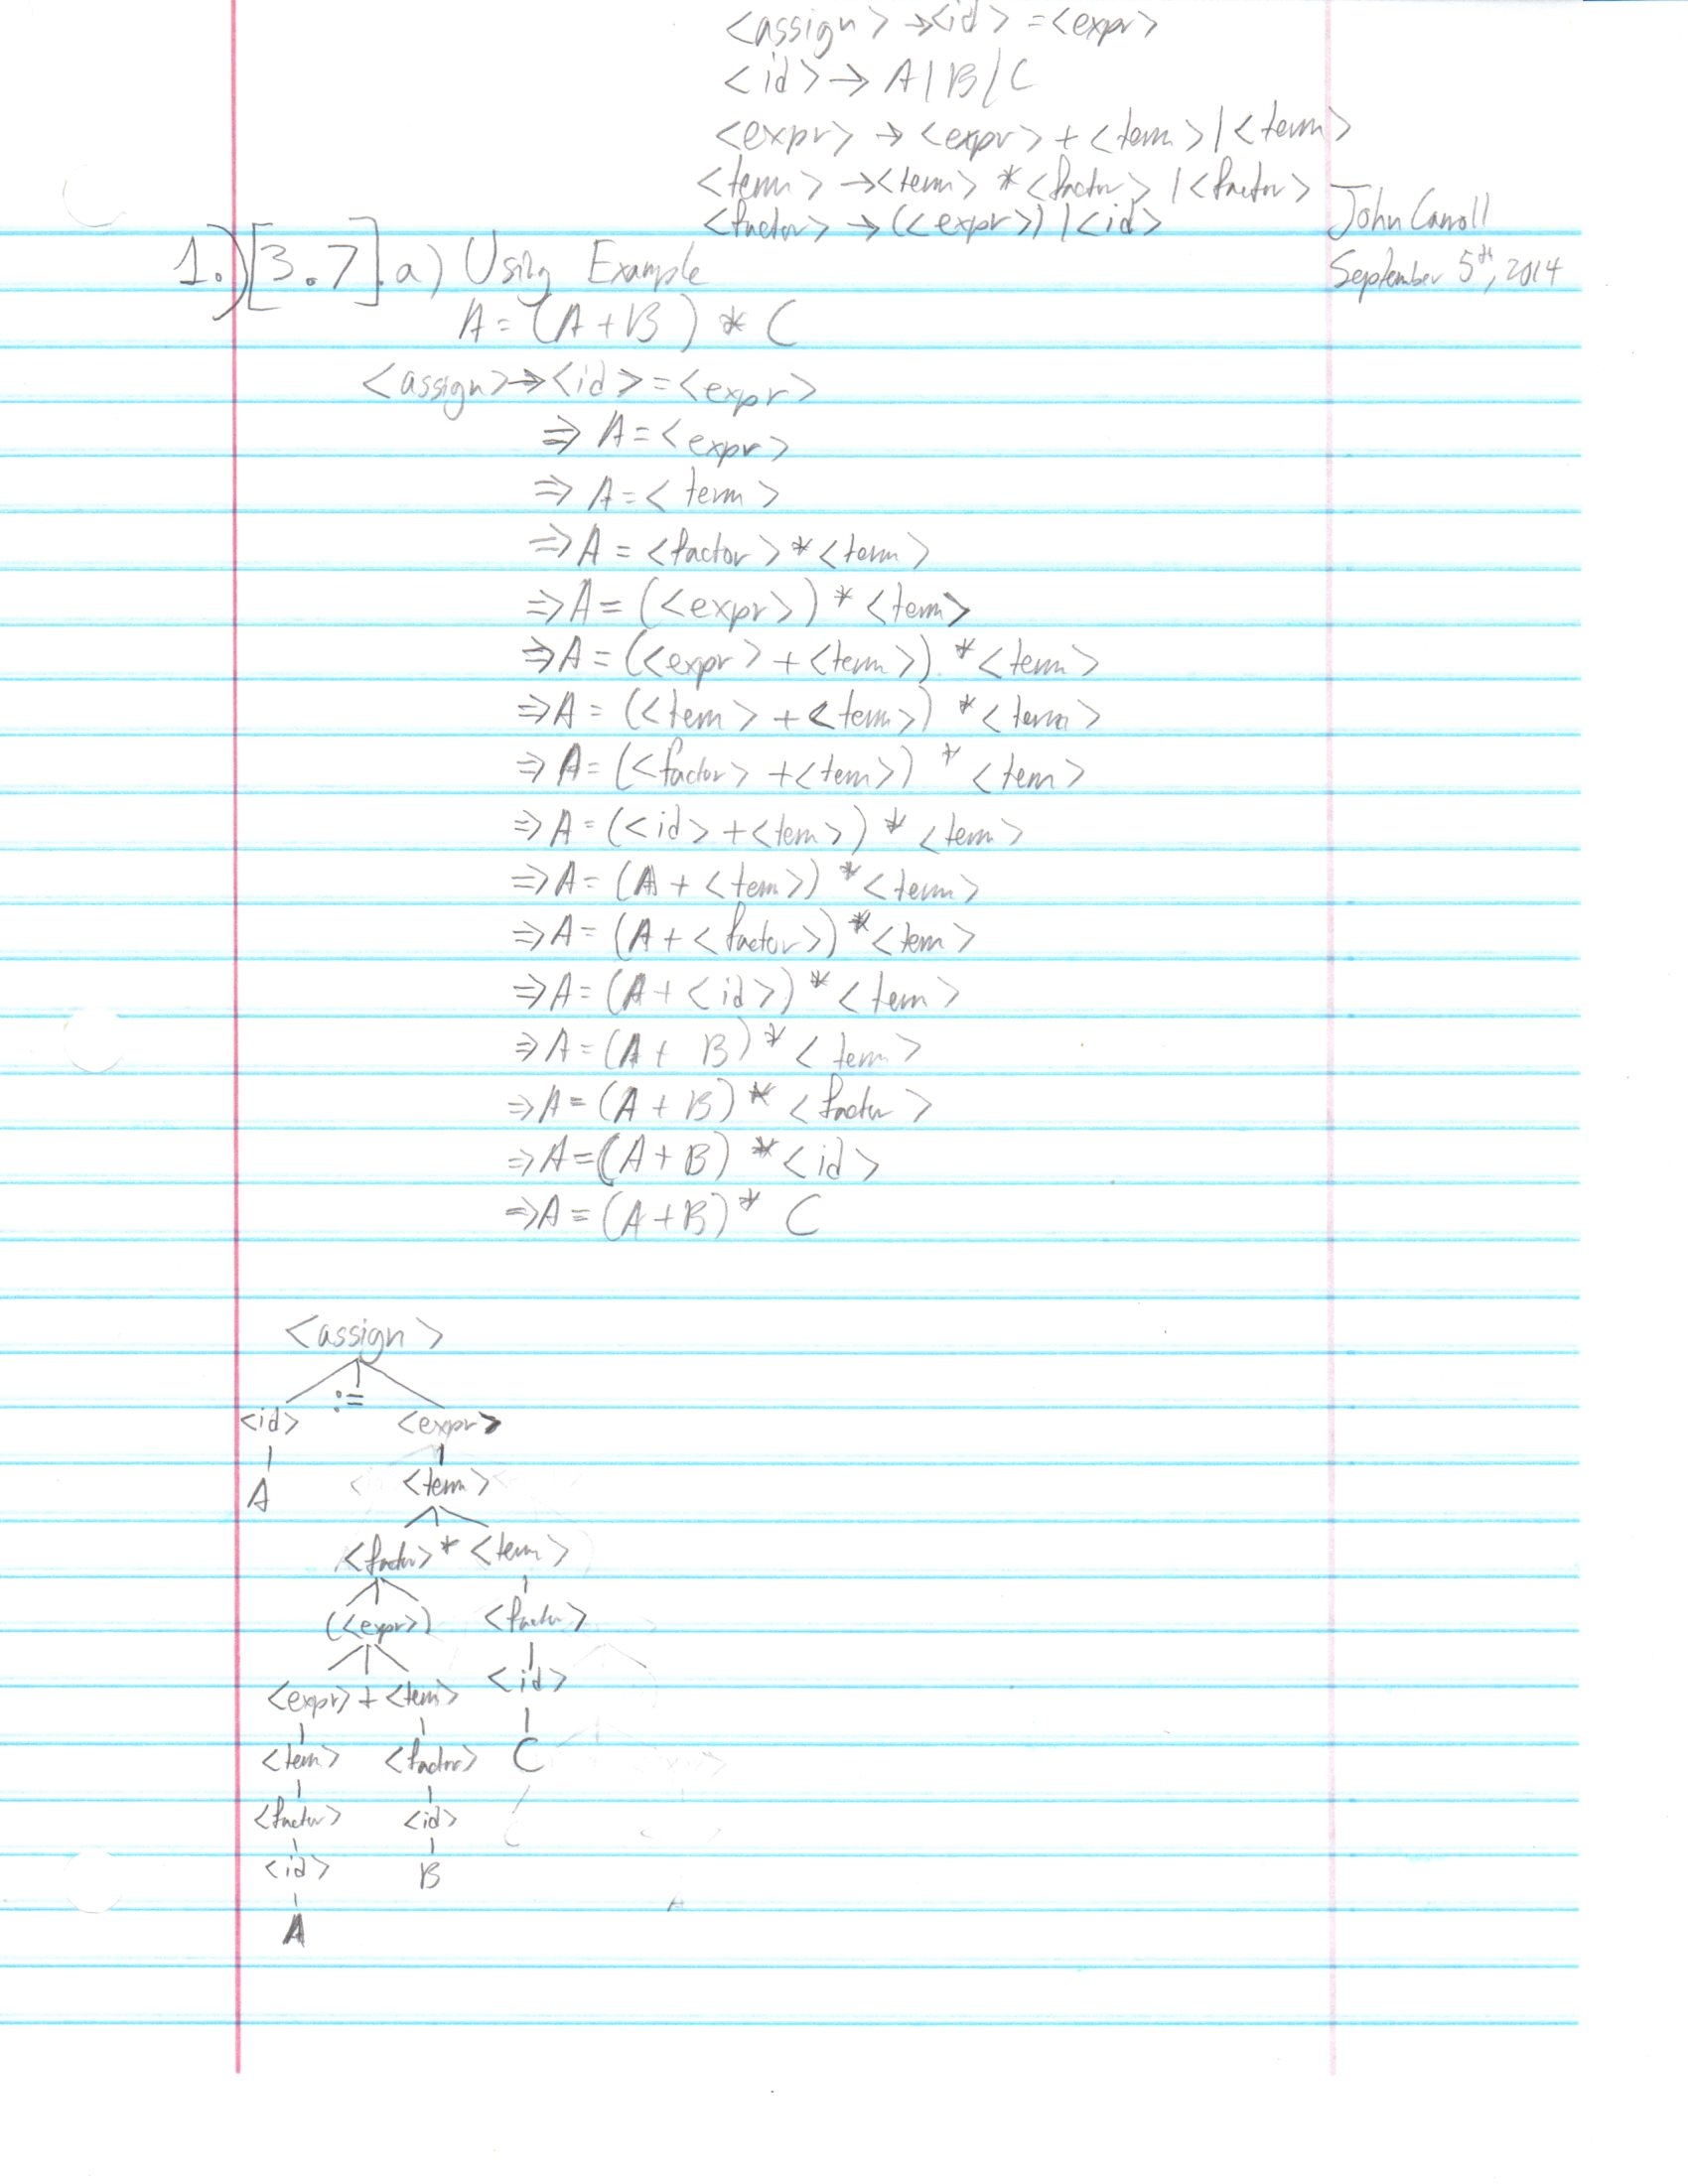 <assign> → <id> = <expr>
<id> → A | B | C
<expr> → <expr> + <term> | <term>
<term> → <term> * <factor> | <factor>
<factor> → (<expr>) | <id>
John Carroll
September 5th, 2014
1.) [3.7].a) Using Example
A = (A + B) * C
<assign> → <id> = <expr>
⇒ A = <expr>
⇒ A = <term>
⇒ A = <factor> * <term>
⇒ A = (<expr>) * <term>
⇒ A = (<expr> + <term>) * <term>
⇒ A = (<term> + <term>) * <term>
⇒ A = (<factor> + <term>) * <term>
⇒ A = (<id> + <term>) * <term>
⇒ A = (A + <term>) * <term>
⇒ A = (A + <factor>) * <term>
⇒ A = (A + <id>) * <term>
⇒ A = (A + B) * <term>
⇒ A = (A + B) * <factor>
⇒ A = (A + B) * <id>
⇒ A = (A + B) * C
<assign>
:=
<id> <expr>
A <term>
<factor> * <term>
(<expr>) <factor>
<expr> + <term> <id>
<term> <factor> C
<factor> <id>
<id> B
A